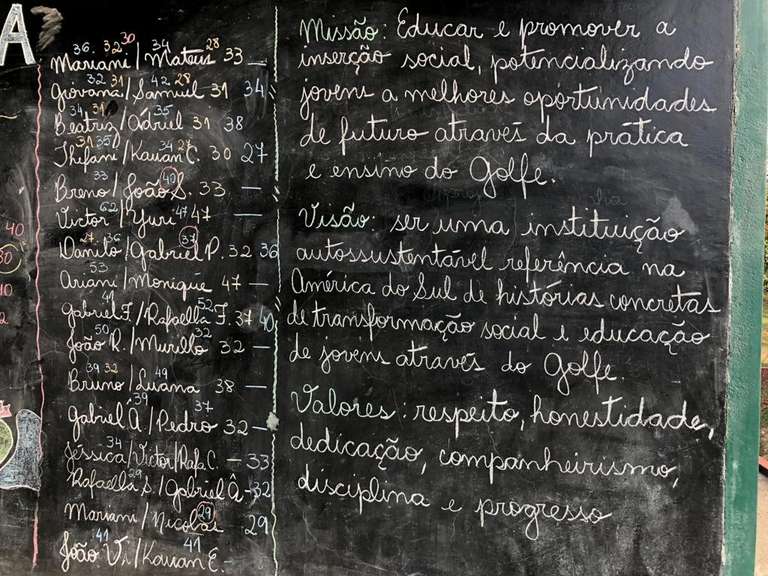 A?
36 32 30 34 28
Mariani/Mateus 33 —
32 31 42 28
Giovana/Samuel 31 34
34 31 35
Beatriz/Adriel 31 38
31 35 34 27
Thifani/Kauan C. 30 27
33 40
Breno/João S. 33 —
62 47
Victor/Yuri 47 —
27 36 37
Danilo/Gabriel P. 32 36
53
Ariani/Monique 47 —
41 52
Gabriel F./Rafaella F. 37 40
50 32
João R./Murillo 32 —
39 32 49
Bruno/Luana 38 —
39 37
Gabriel Â/Pedro 32 —
34
Jéssica/Victor/Rafa C. — 33
29
Rafaella S./Gabriel Â — 32
29
Mariani/Nicolas 29
41 41
João Vi/Kauan E. —
Missão: Educar e promover a
inserção social, potencializando
jovens a melhores oportunidades
de futuro através da prática
e ensino do Golfe.
Visão: ser uma instituição
autossustentável referência na
América do Sul de histórias concretas
de transformação social e educação
de jovens através do Golfe.
Valores: respeito, honestidade,
dedicação, companheirismo,
disciplina e progresso